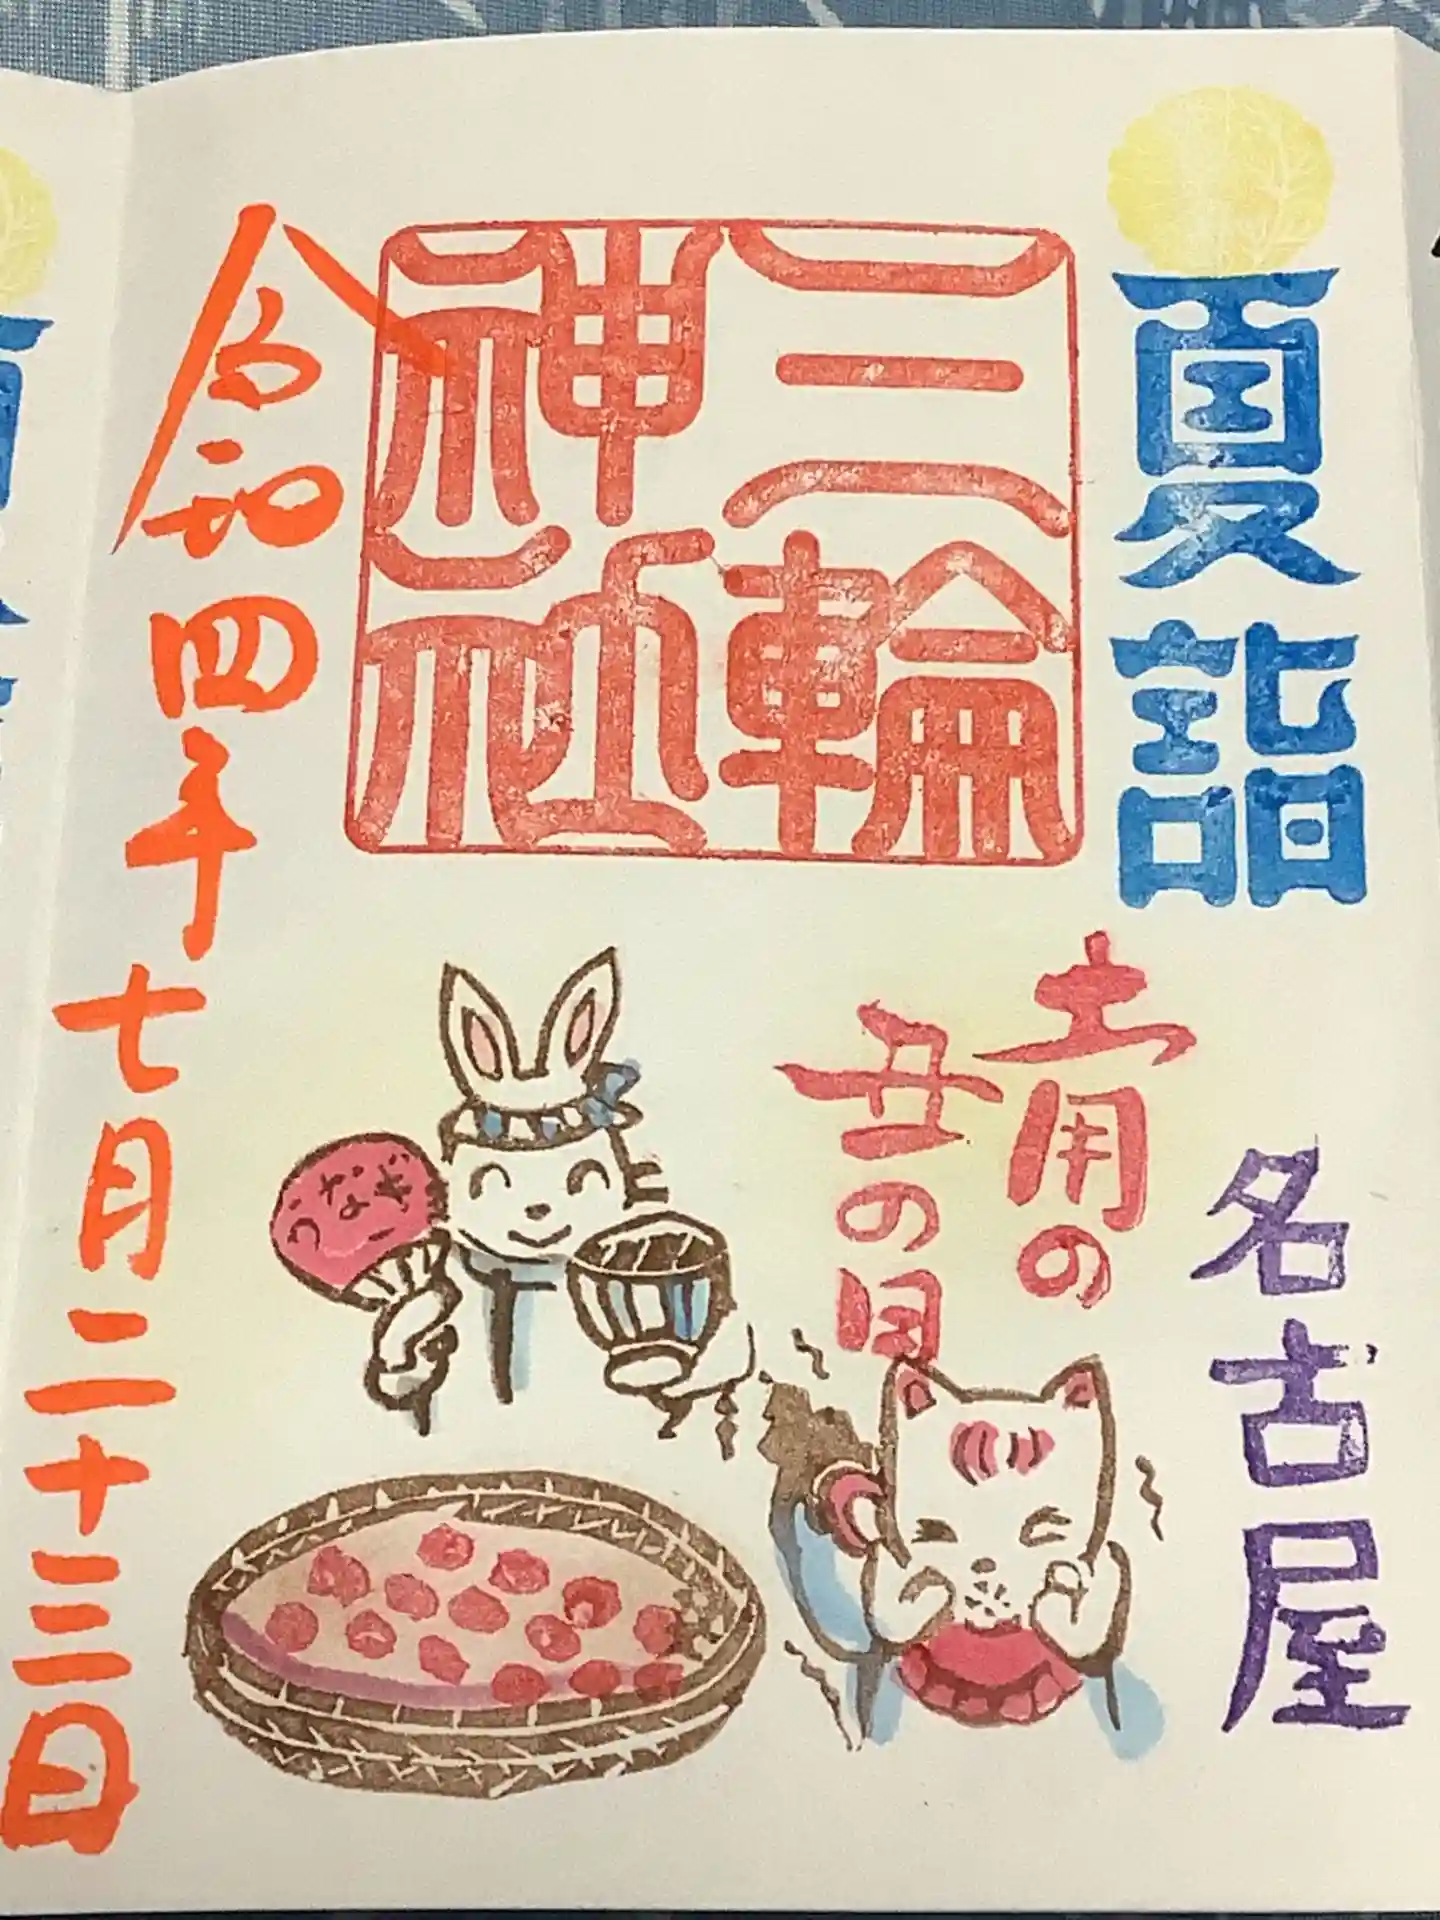 夏詣
名古屋
三輪
神社
土用の
丑の日
うなぎ
令和四年七月二十三日